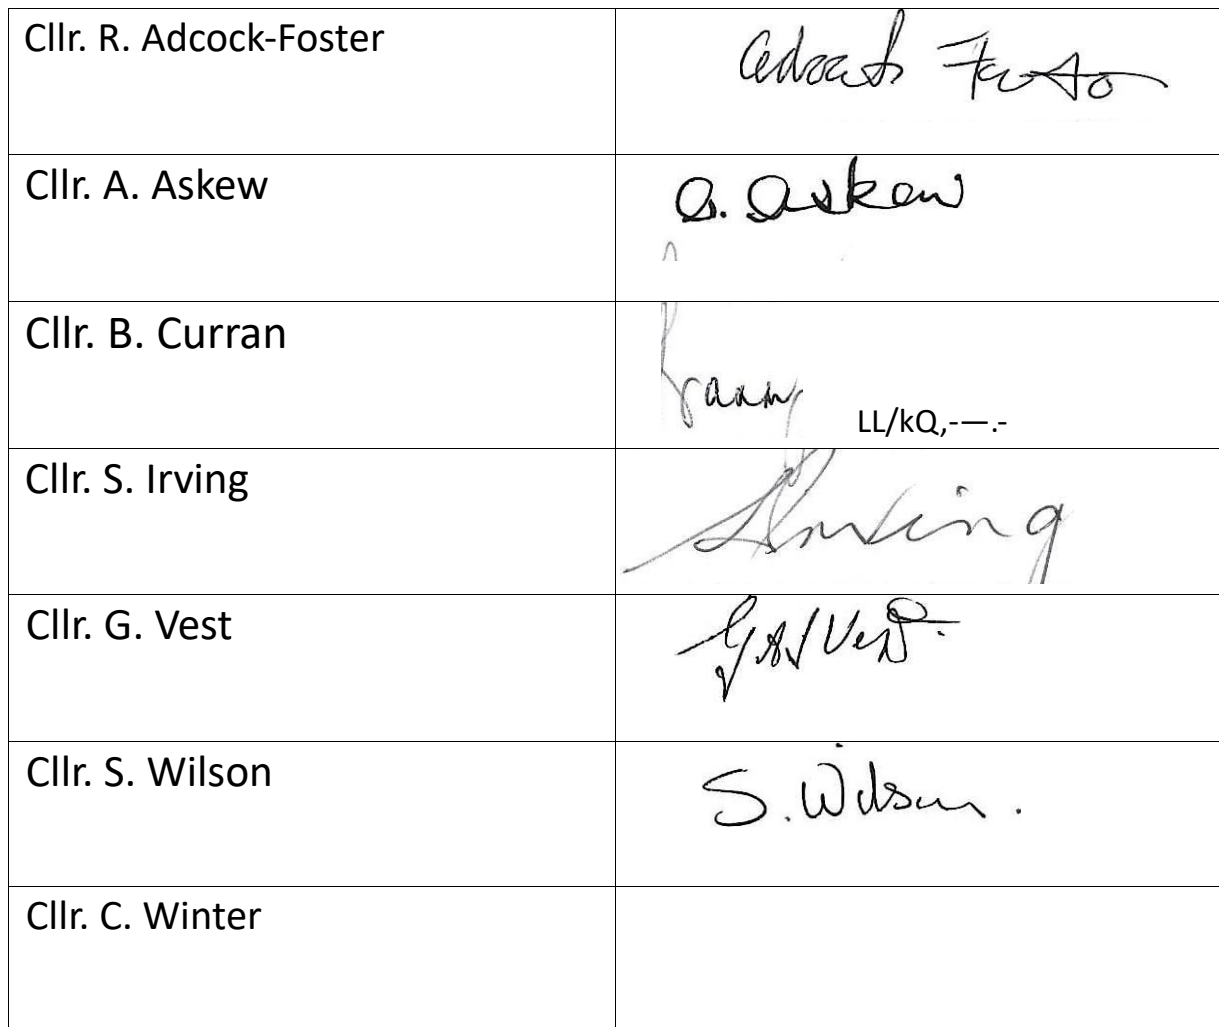 Cllr. R. Adcock-Foster
Cllr. A. Askew
a. askew
Cllr. B. Curran
LL/kQ,-—.-
Cllr. S. Irving
SIrving
Cllr. G. Vest
Vest
Cllr. S. Wilson
S. Wilson.
Cllr. C. Winter